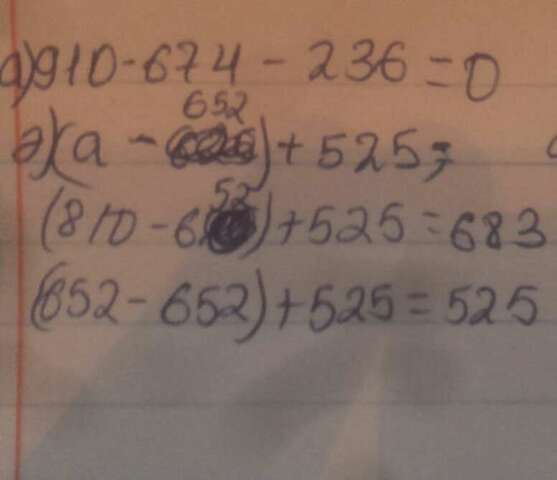 а)910-674-236=0
д)(а-652)+525;
(810-652)+525=683
(652-652)+525=525